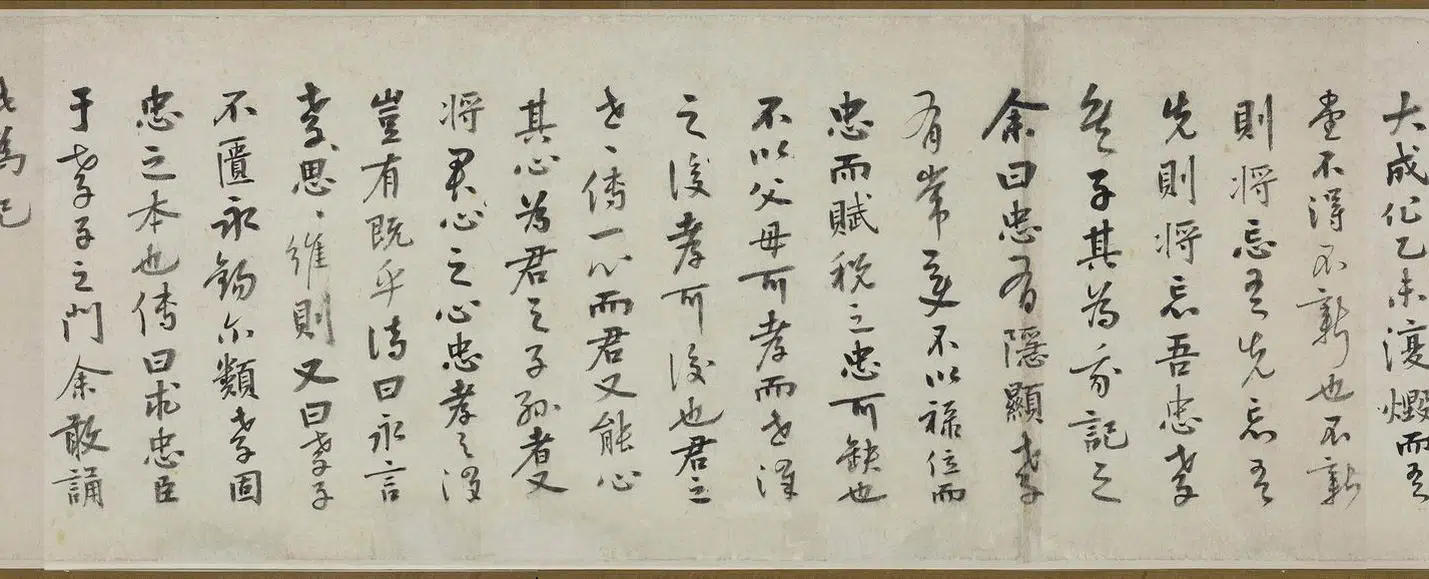 大成化乙未復燬而吾
堂不得不新也不新
則將忘吾先忘吾
先則將忘吾忠孝
矣子其為我記之
余曰忠有隱顯孝
有常變不以祿位而
忠而賦稅之忠可缺也
不以父母可孝而世澤
之後孝可後也君之
世世傳一心而君又能心
其心為君之子孫者又
將君心之心忠孝之澤
豈有既乎詩曰永言
孝思孝思維則又曰孝子
不匱永錫尔類孝固
忠之本也傳曰求忠臣
于孝子之門余敢誦
此為記